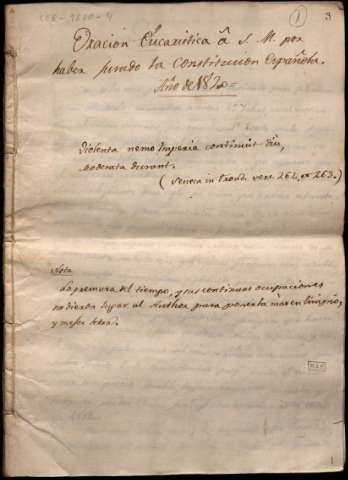 1 3
Oracion Eucaristica á S. M. por
haber jurado la Constitucion Española.
Año de 1820=
Violenta nemo Imperia continuit diu,
moderata durant.
(Seneca in Troad. vers. 262, et 263.)
Nota
La premura del tiempo, y sus continuas ocupaciones
no dieron lugar al Author para ponerla mas en limpio,
y mejor letra.
1